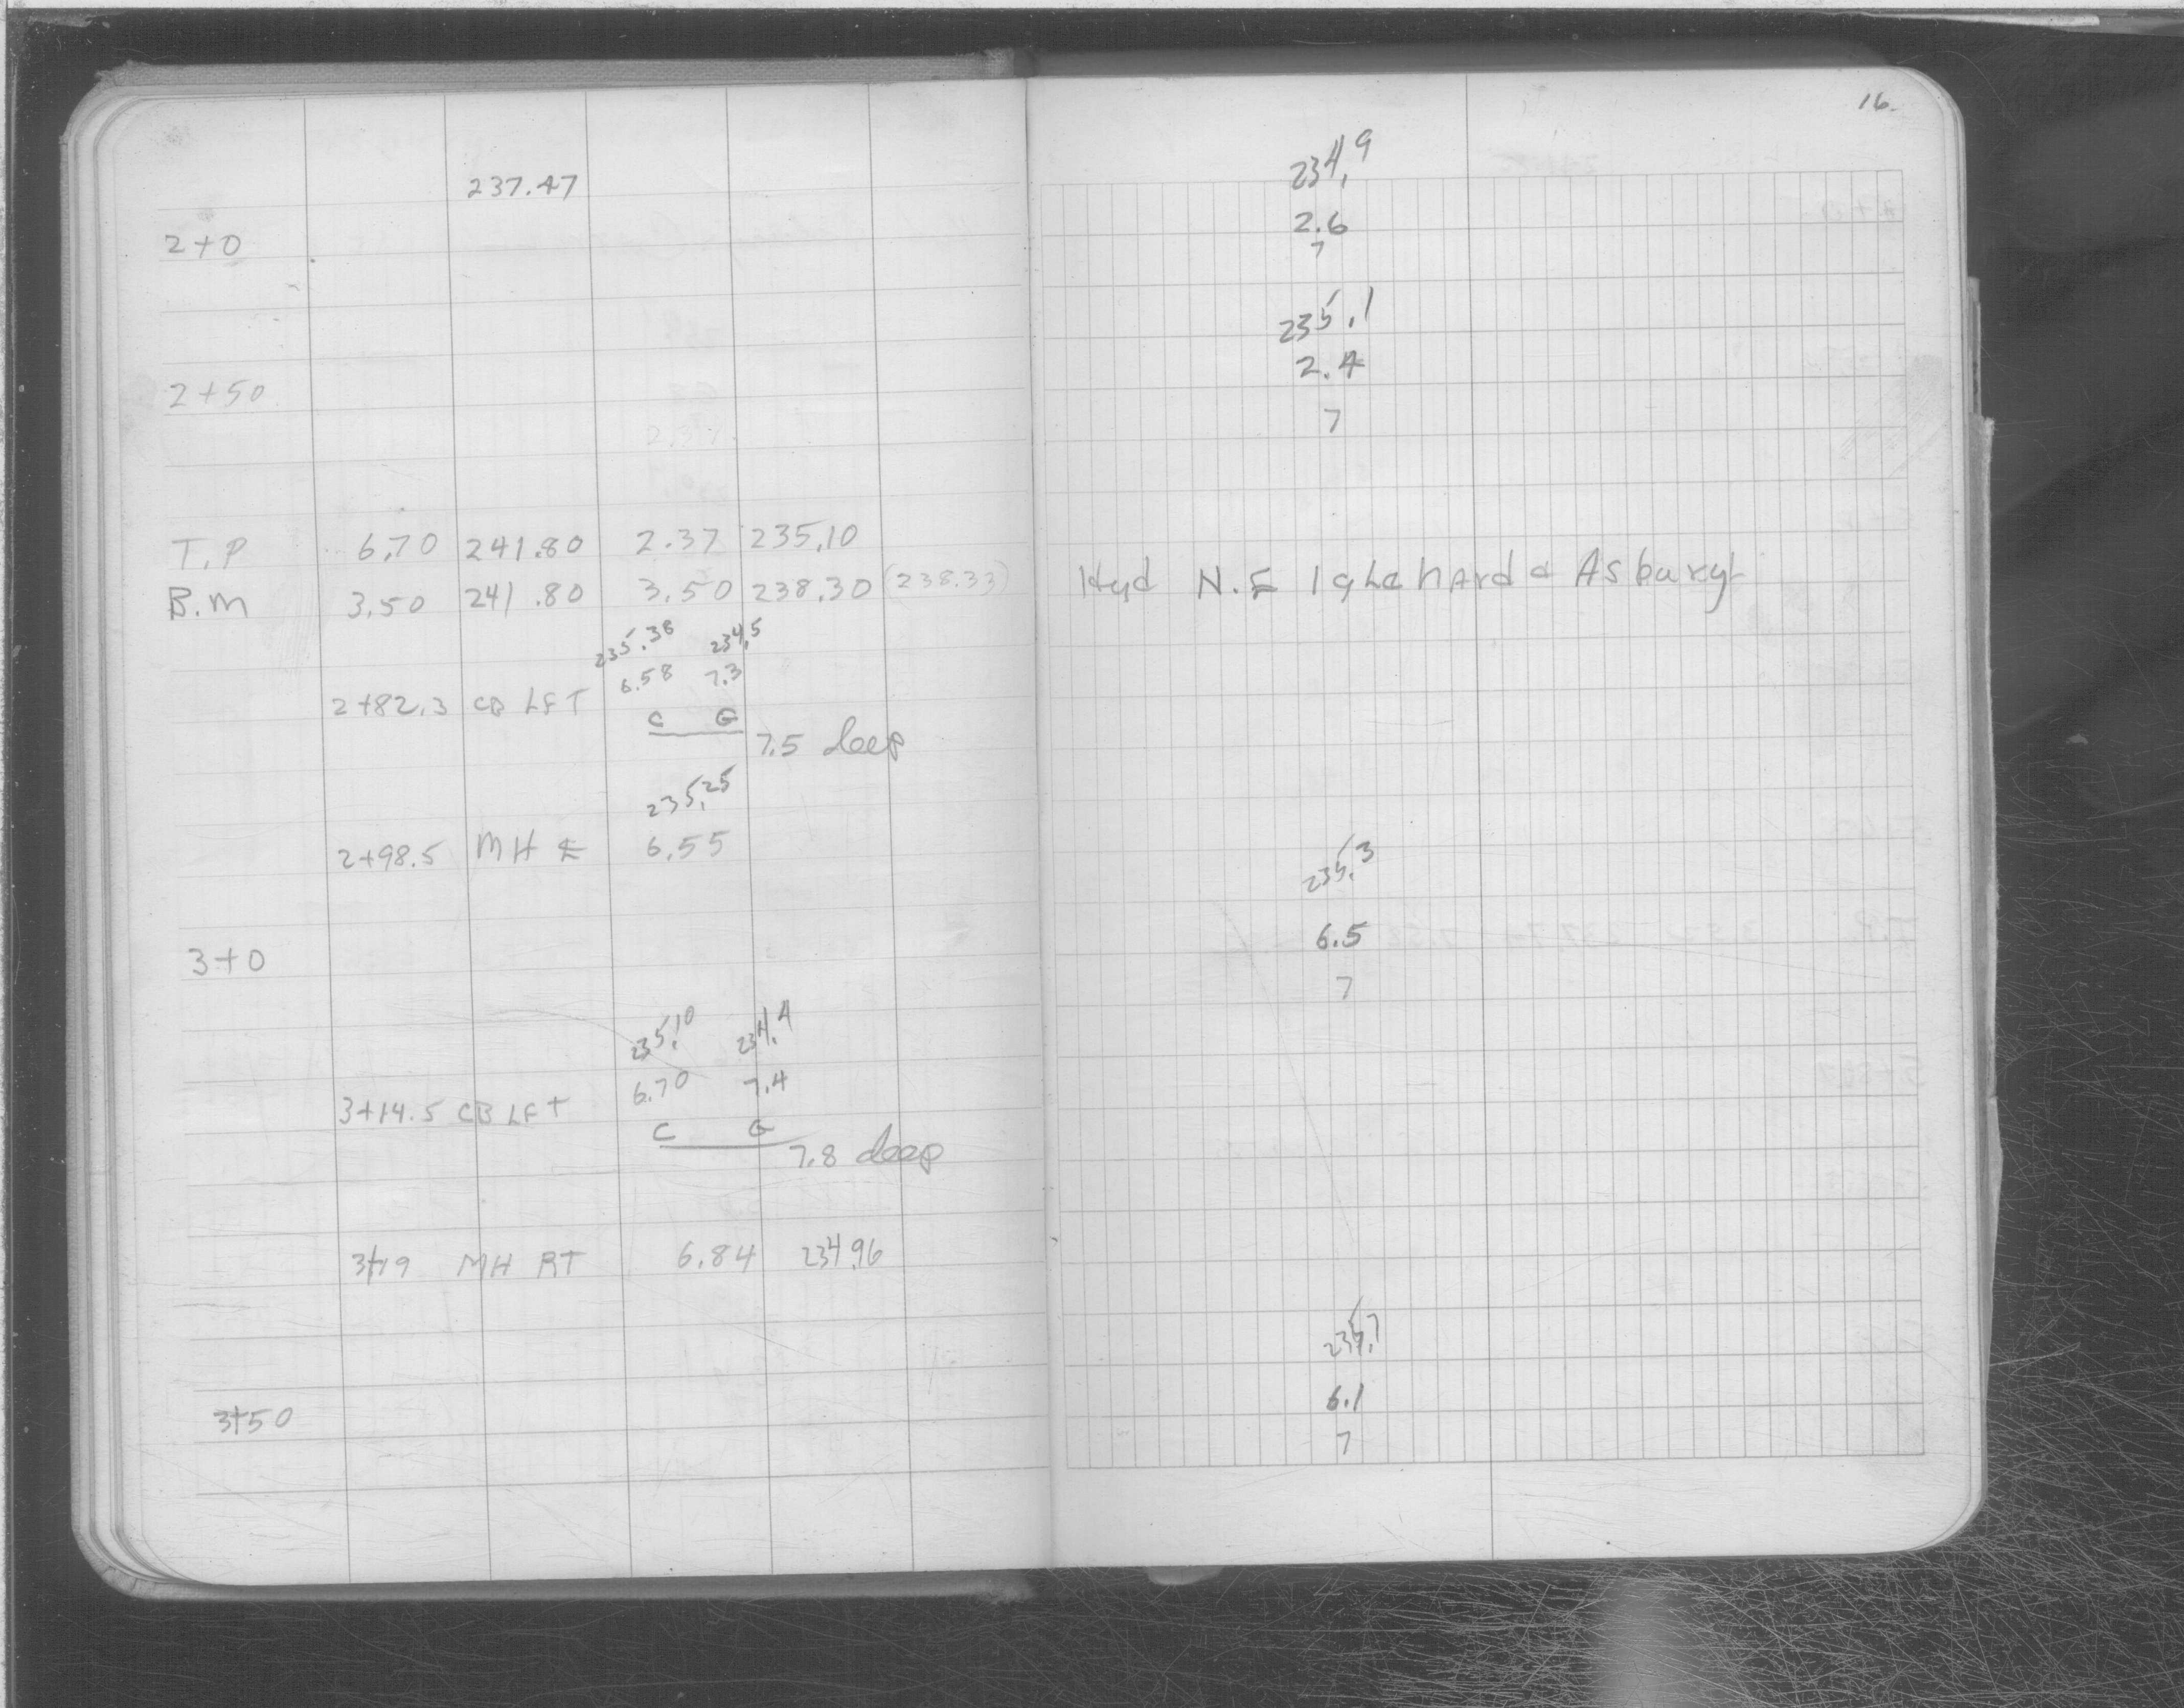 16.
237.47
234.9
2+0
2.6
7
235.1
2.4
2+50
7
T.P 6.70 241.80 2.37 235.10
B.M 3.50 241.80 3.50 238.30 (238.33) Hyd N.E Iglehard & Asbury
235.38 234.5
6.58 7.3
2+82.3 CB LFT
C G
7.5 deep
235.25
2+98.5 MH ℄ 6.55
235.3
6.5
3+0
7
235.10 234.4
6.70 7.4
3+14.5 CB LFT
C G
7.8 deep
3+19 MH RT 6.84 234.96
235.7
6.1
3+50
7